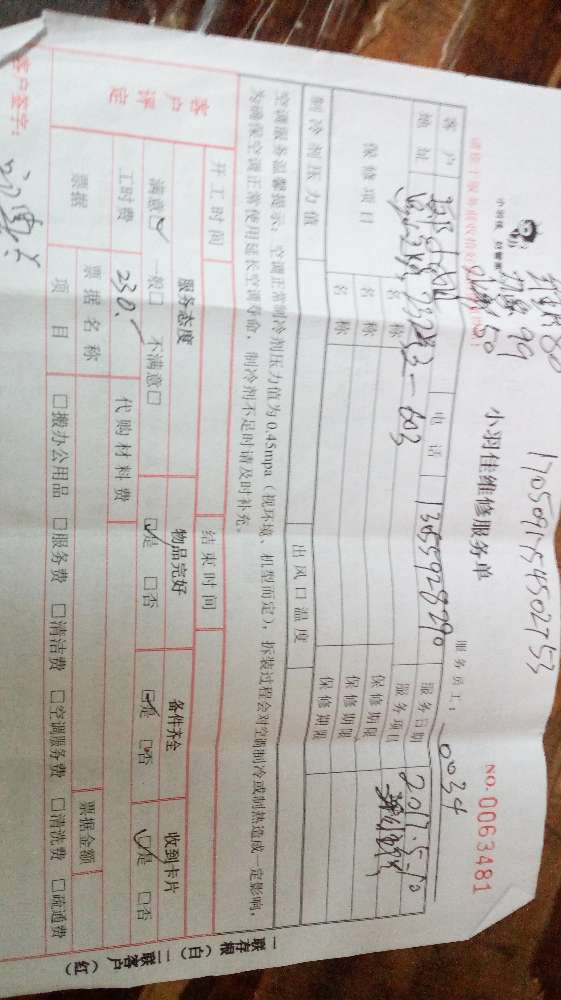 170509154502753
小羽佳维修服务单
NO.0063481
小羽佳 好管家
服务员工: 0034
客户 电话 服务日期 2017.5.10
地址 服务项目
保修项目 名称 保修期限
名称 保修期限
名称 保修期限
制冷剂压力值 出风口温度
空调服务温馨提示:空调正常制冷剂压力值为0.45mpa(视环境、机型而定),拆装过程会对空调制冷或制热造成一定影响,
为确保空调正常使用延长空调寿命,制冷剂不足时请及时补充。
开工时间 结束时间
客户评定 服务态度 物品完好 备件齐全 收到卡片
满意□ 一般□ 不满意□ □是 □否 □是 □否 □是 □否
工时费 230. 代购材料费
票据 票据名称 票据金额
项目 □搬办公用品 □服务费 □清洁费 □空调服务费 □清洗费 □疏通费
客户签字:
一联存根(白)二联客户(红)